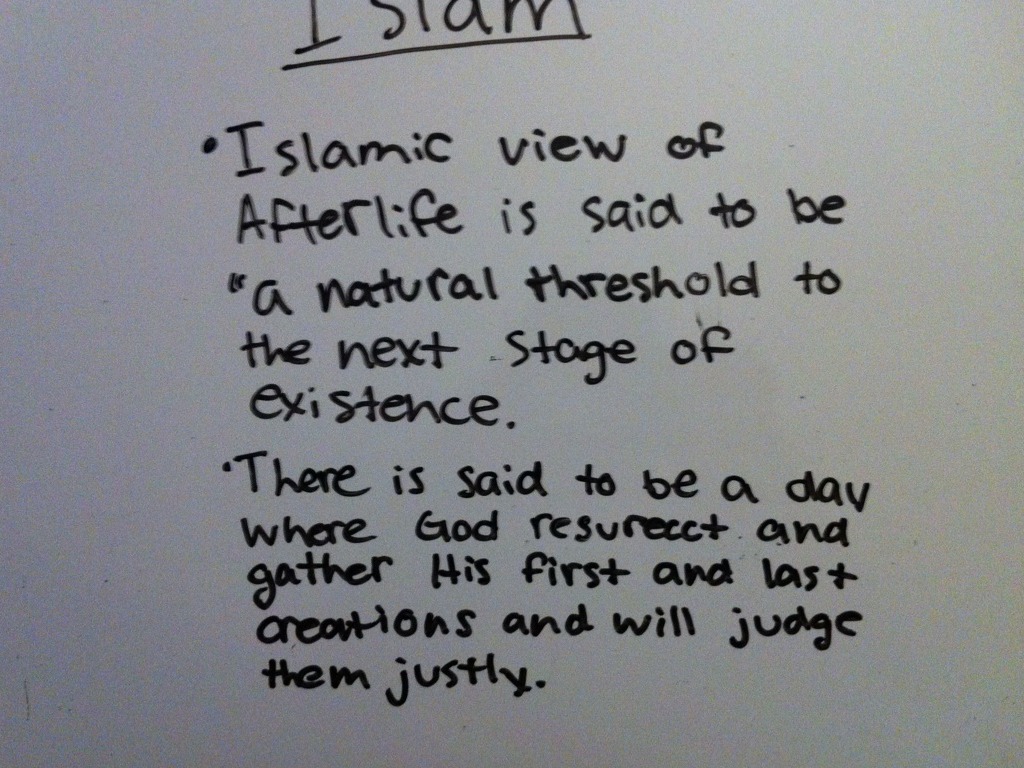 Islam
•Islamic view of
Afterlife is said to be
"a natural threshold to
the next stage of
existence.
•There is said to be a day
where God resurecct and
gather His first and last
creations and will judge
them justly.